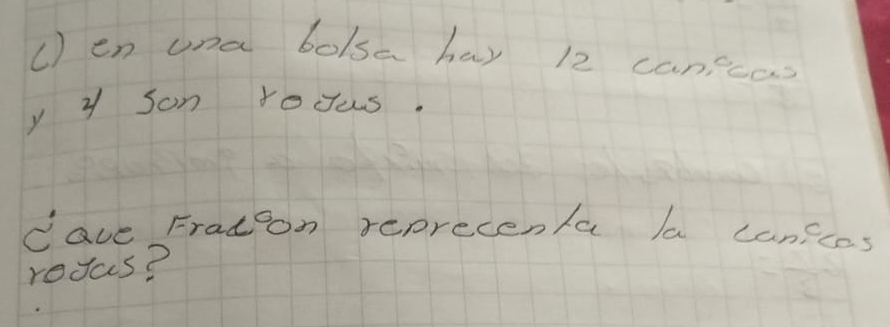 c) en una bolsa hay 12 canicas
y 4 son rojas.
¿que Fracion reprecenta la canicas
rojas?